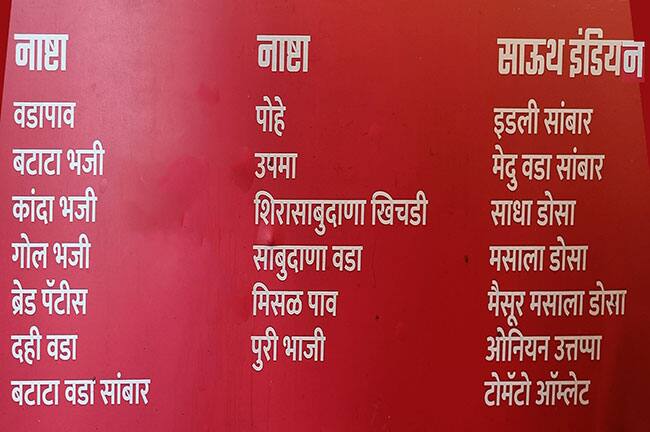 नाष्टा
वडापाव
बटाटा भजी
कांदा भजी
गोल भजी
ब्रेड पॅटीस
दही वडा
बटाटा वडा सांबार
नाष्टा
पोहे
उपमा
शिरासाबुदाणा खिचडी
साबुदाणा वडा
मिसळ पाव
पुरी भाजी
साऊथ इंडियन
इडली सांबार
मेदु वडा सांबार
साधा डोसा
मसाला डोसा
मैसूर मसाला डोसा
ओनियन उत्तप्पा
टोमॅटो ऑम्लेट